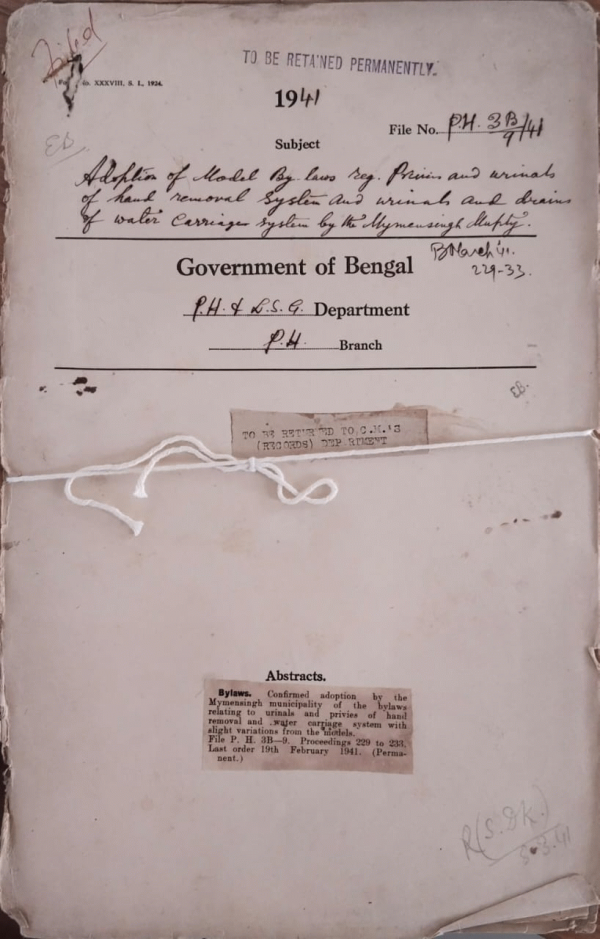 Filed
TO BE RETAINED PERMANENTLY.
No. XXXVIII, S. I., 1924.
1941
File No. P.H. 3B/9/41
Subject
EB
Adoption of Model By laws reg. Privies and urinals
of hand removal system and urinals and drains
of water carriage system by the Mymensingh Mupty.
B March '41.
229-33.
Government of Bengal
P.H. & L.S.G. Department
P.H. Branch
EB.
TO BE RETURNED TO C.M.'S
(RECORDS) DEPARTMENT
Abstracts.
Bylaws. Confirmed adoption by the
Mymensingh municipality of the bylaws
relating to urinals and privies of hand
removal and water carriage system with
slight variations from the models.
File P. H. 3B—9. Proceedings 229 to 233.
Last order 19th February 1941. (Perma-
nent.)
R(S.DK.)
5.3.41